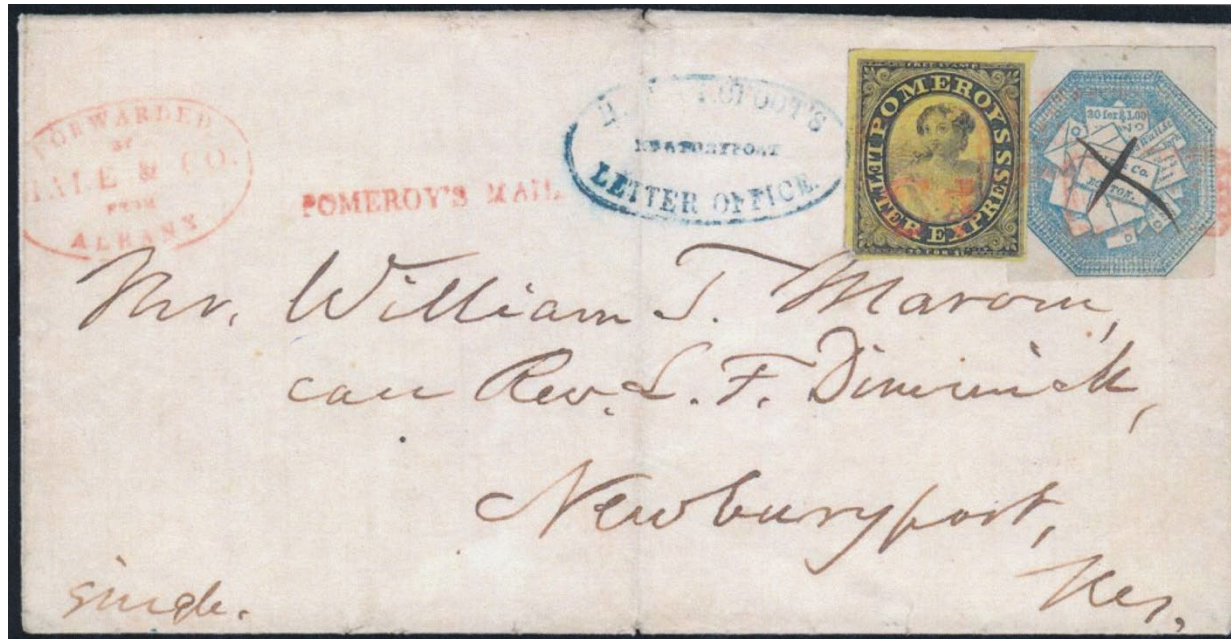 FORWARDED
BY
HALE & CO.
FROM
ALBANY
POMEROY'S MAIL
NEWBURYPORT
LETTER OFFICE.
FREE STAMP
POMEROY'S
LETTER EXPRESS.
20 for $1.00
& Co.
Mr. William T.
care Rev. L. F. Dimmick,
Newburyport,
single.